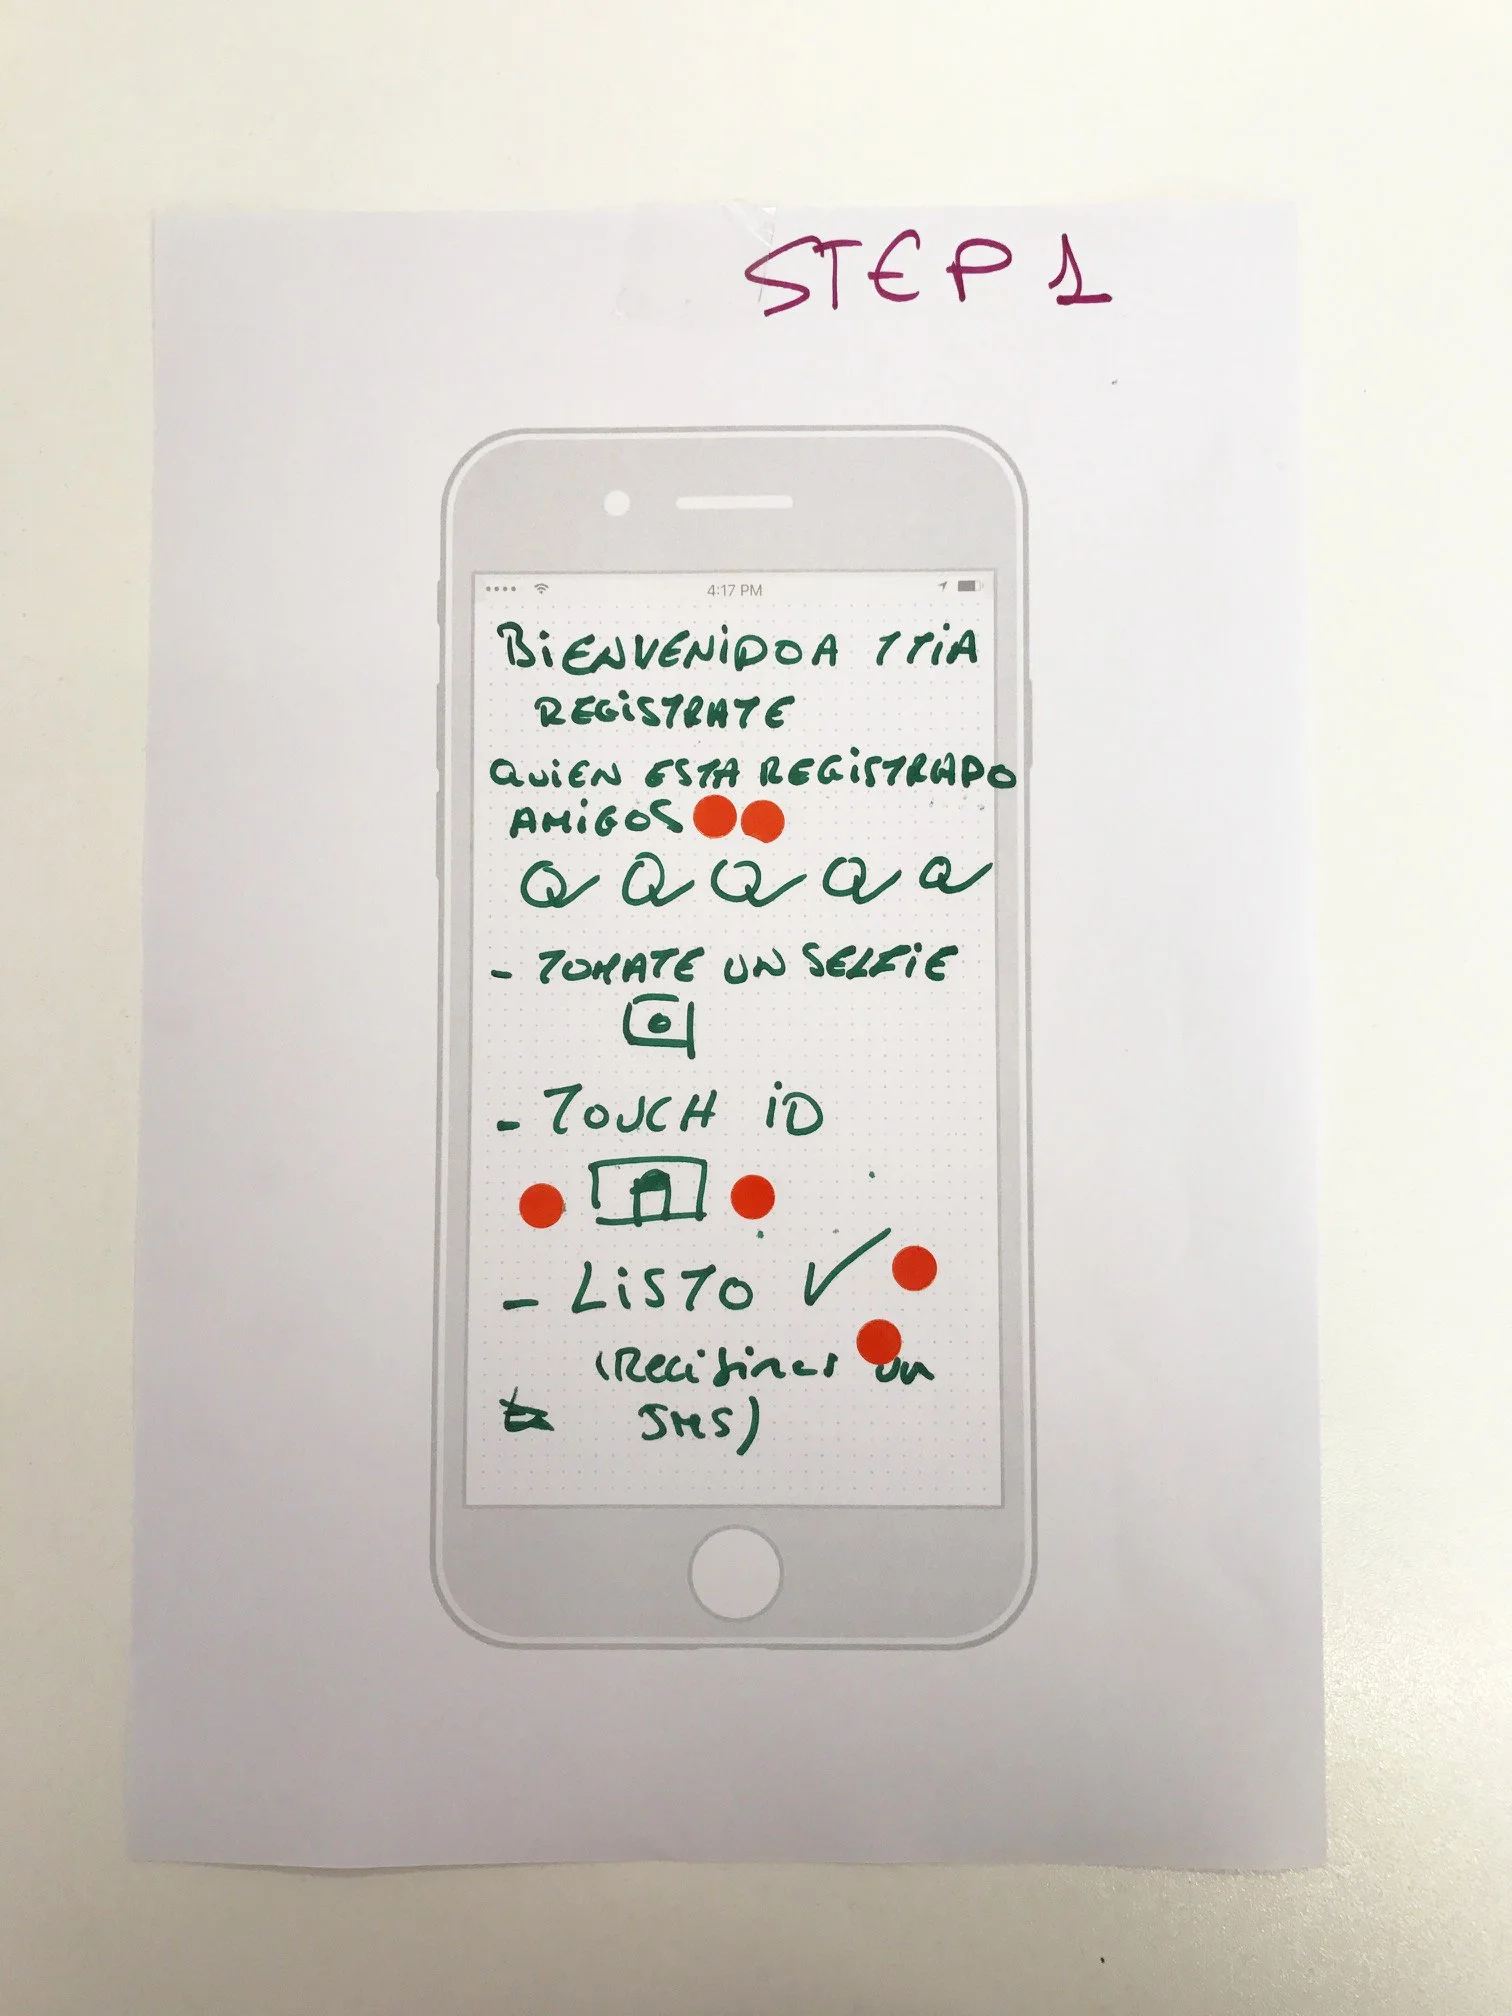 STEP 1
4:17 PM
BiENVENiDO A TTiA
REGiSTRATE
QUiEN ESTA REGiSTRADO
AMiGOS
- TOMATE UN SELFiE
- TOUCH iD
- LiSTO ✓
(Recibiras un
SMS)